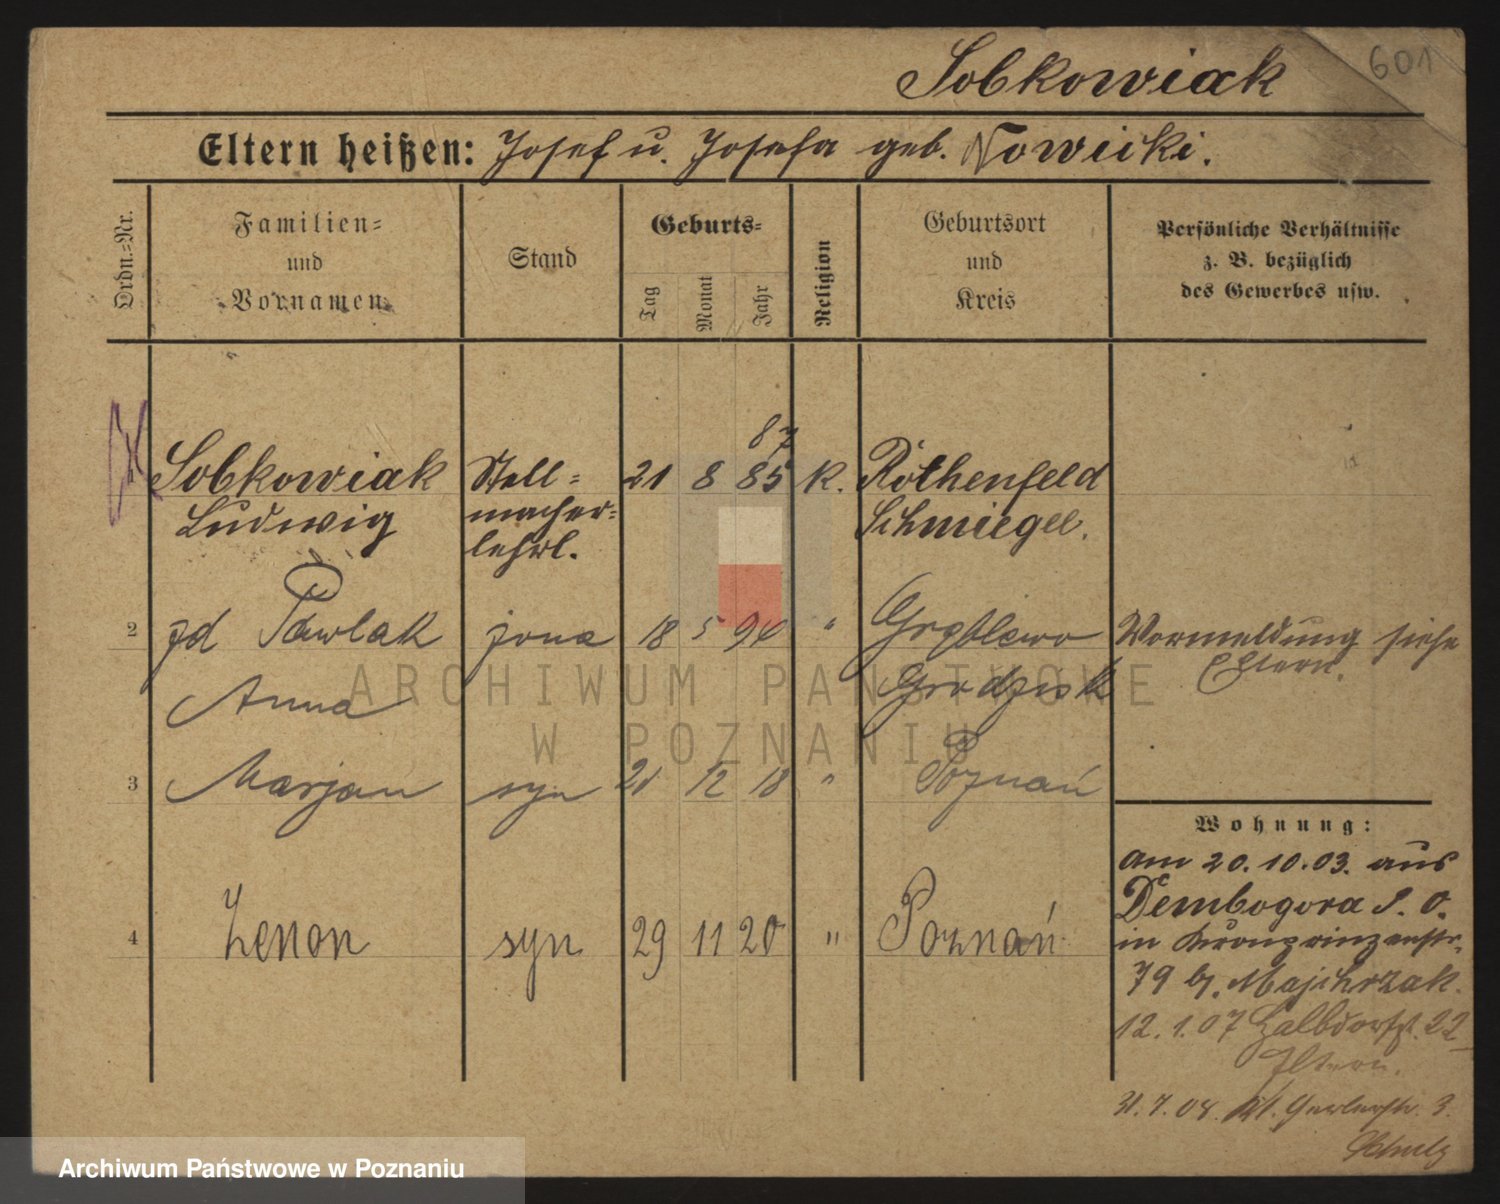 Sobkowiak
601
Eltern heißen: Josef u. Josefa geb. Nowicki.
Ordn.=Nr.
Familien=
und
Vornamen
Stand
Geburts=
Tag
Monat
Jahr
Religion
Geburtsort
und
Kreis
Persönliche Verhältnisse
z. B. bezüglich
des Gewerbes usw.
87
Sobkowiak Stell= 21 8 85 k. Rothenfeld
Ludwig macher= Schmiegel.
lehrl.
2 zd Pawlak żona 18 5 94 " Grąblewo Vormeldung siehe
Eltern.
Anna Grodzisk
3 Marjan syn 21 12 18 " Poznań
Wohnung:
am 20. 10. 03. aus
Dembogora P. O.
4 Zenon syn 29 11 20 " Poznań
in Kronprinzenstr.
79 b. Majchrzak.
12. 1. 07 Halbdorfstr. 22
Eltern.
31. 7. 08. Gerberstr. 3.
Schulz
ARCHIWUM PAŃSTWOWE
W POZNANIU
Archiwum Państwowe w Poznaniu